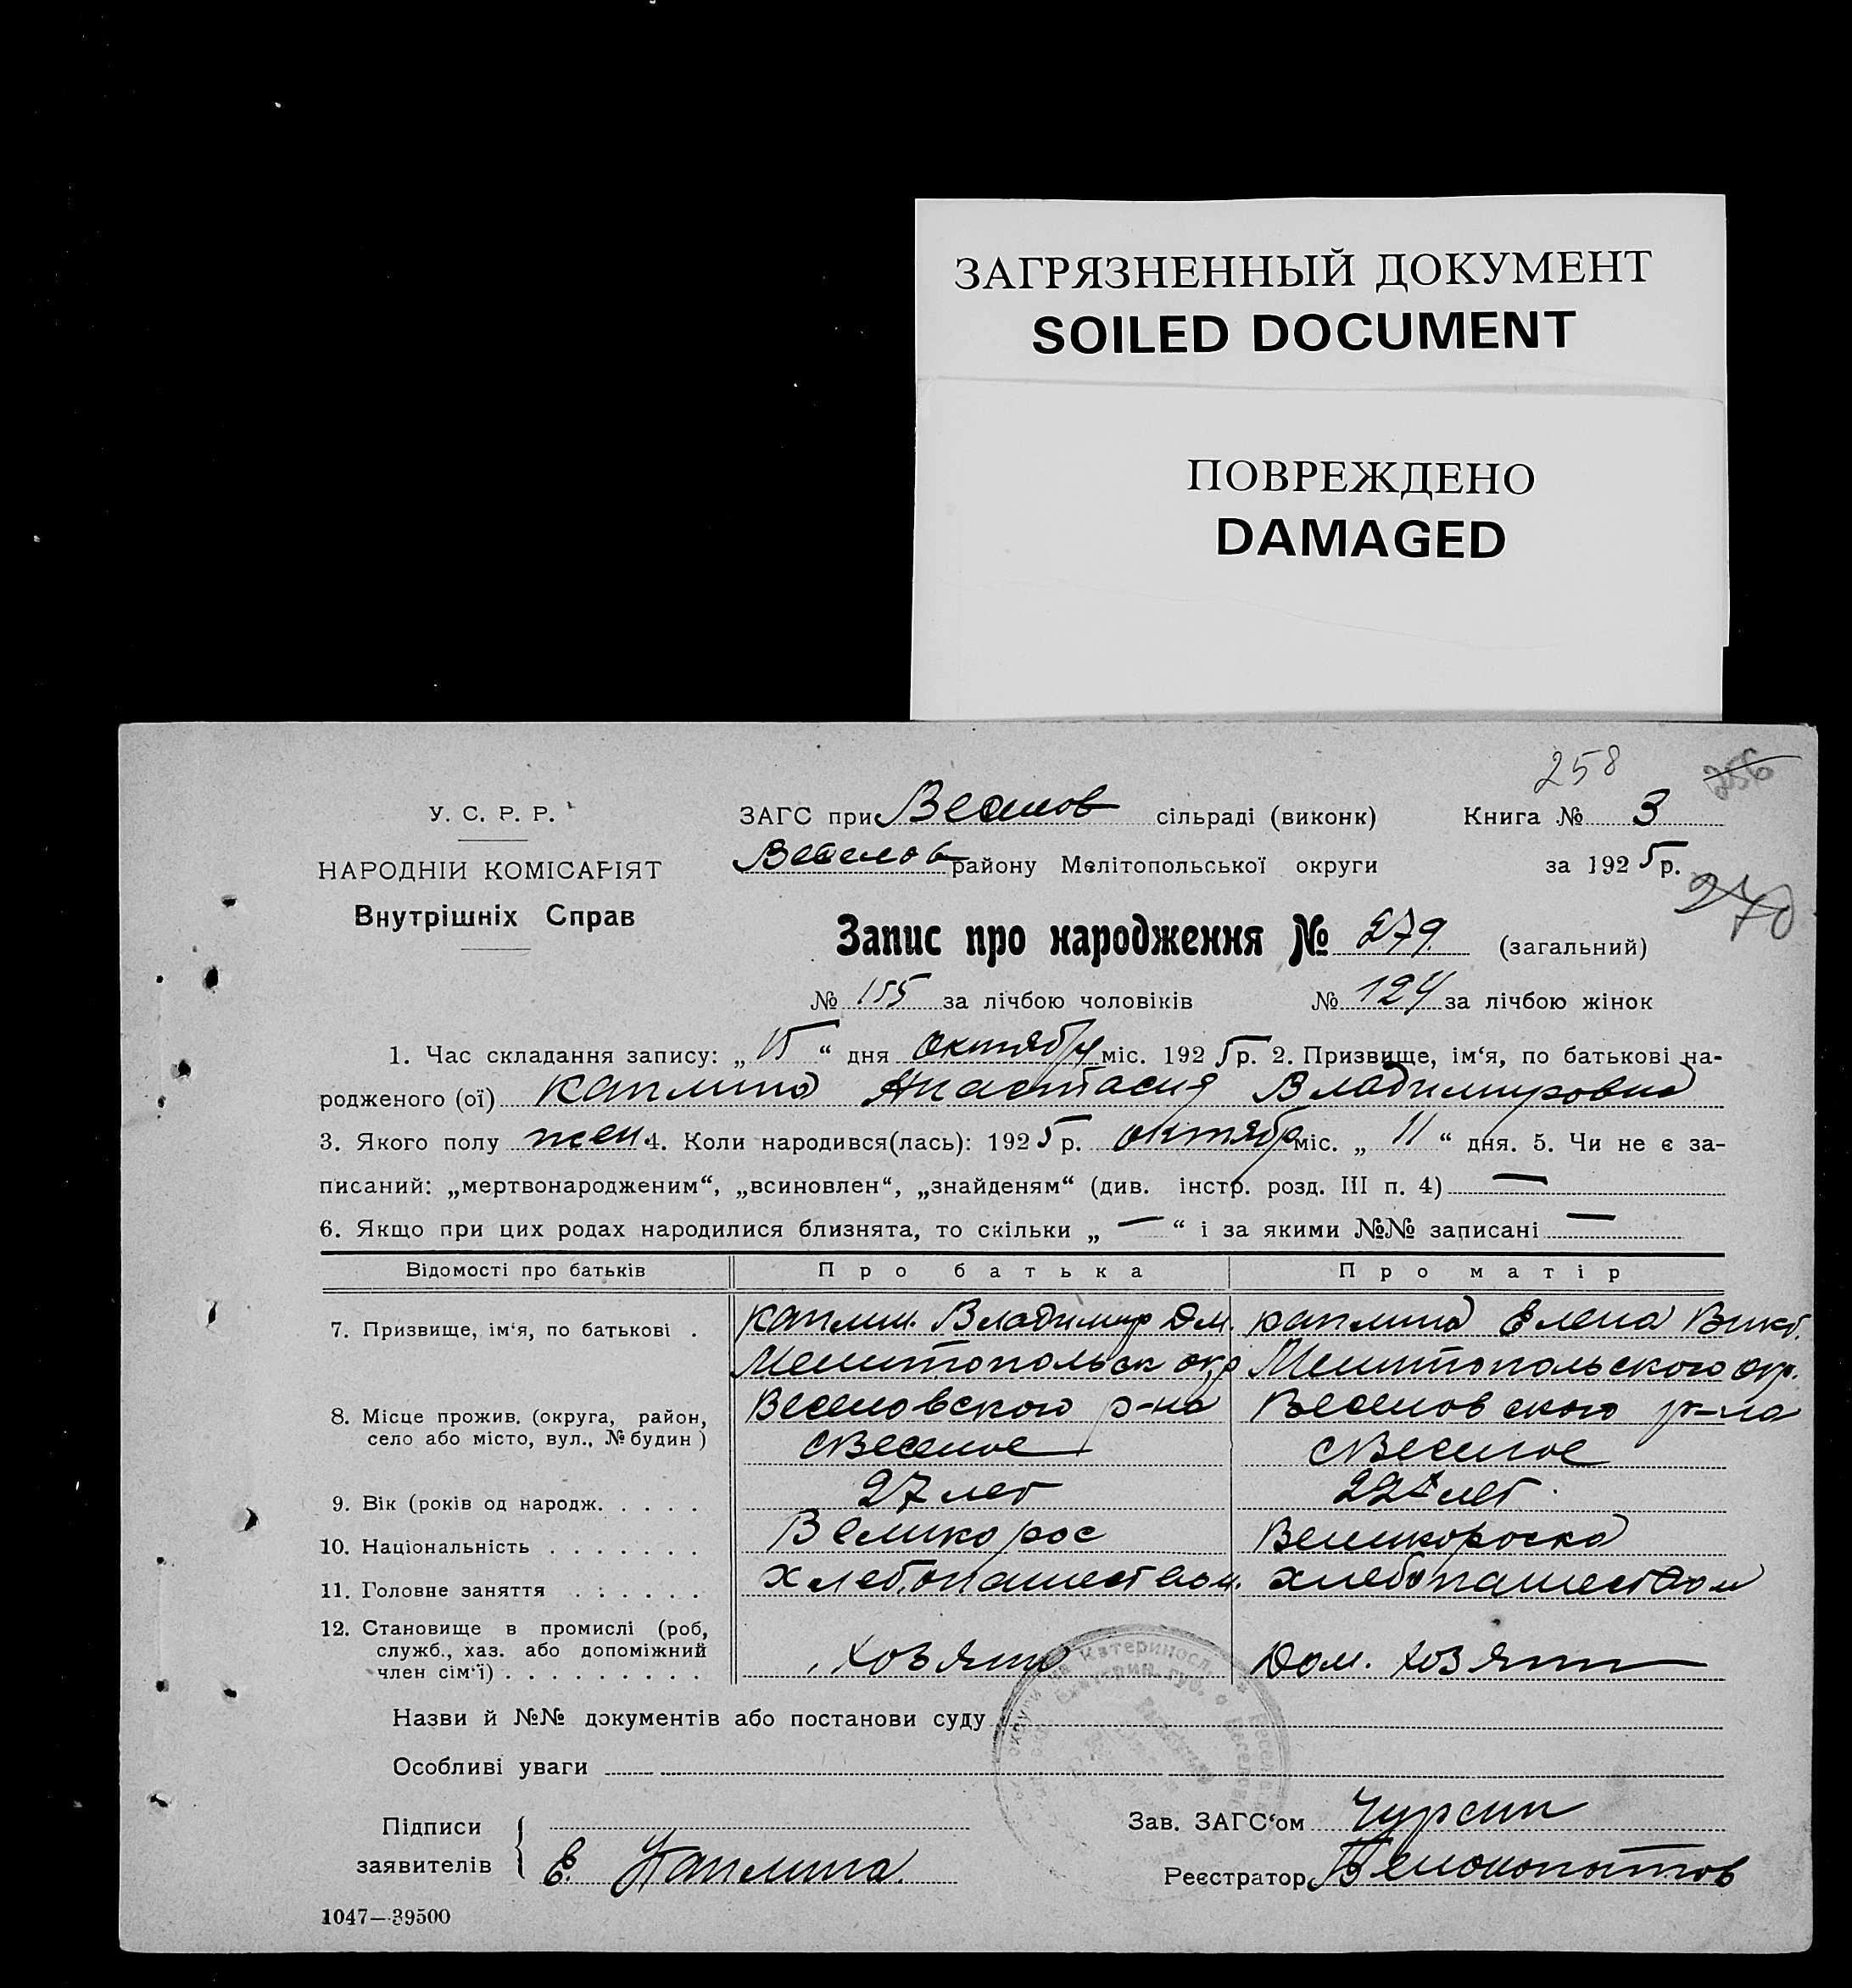 ЗАГРЯЗНЕННЫЙ ДОКУМЕНТ
SOILED DOCUMENT
ПОВРЕЖДЕНО
DAMAGED
258 256
У. С. Р. Р.
НАРОДНІЙ КОМІСАРІЯТ
Внутрішніх Справ
ЗАГС при Веселов сільраді (виконк) Книга № 3
Веселов району Мелітопольської округи за 1925 р.
270
Запис про народження № 279 (загальний)
№ 155 за лічбою чоловіків № 124 за лічбою жінок
1. Час складання запису: „15“ дня октября міс. 1925 р. 2. Призвище, ім‘я, по батькові на-
родженого (ої) Каплина Анастасия Владимировна
3. Якого полу жен. 4. Коли народився(лась): 1925 р. октября міс. „11“ дня. 5. Чи не є за-
писаний: „мертвонародженим“, „всиновлен“, „знайденям“ (див. інстр. розд. III п. 4) —
6. Якщо при цих родах народилися близнята, то скільки „—“ і за якими №№ записані —
Відомості про батьків Про батька Про матір
7. Призвище, ім‘я, по батькові . Каплин. Владимир Дм. Каплина Елена Викт.
Мелитопольск окр Мелитопольского окр.
8. Місце прожив. (округа, район, Веселовского р-на Веселовского р-на
село або місто, вул., № будин) с Веселое с Веселое
9. Вік (років од народж. . . . . 27 лет 22 лет
10. Національність . . . . . . . Великорос Великороска
11. Головне заняття . . . . . . хлебопашеством. хлебопашеством
12. Становище в промислі (роб,
служб., хаз. або допоміжний
член сім‘ї) . . . . . . . . . Хозяин Дом. хозяин
Назви й №№ документів або постанови суду
Особливі уваги
Підписи Зав. ЗАГС‘ом Чурсин
заявителів Е. Каплина. Реєстратор Белокопытов
1047—39500